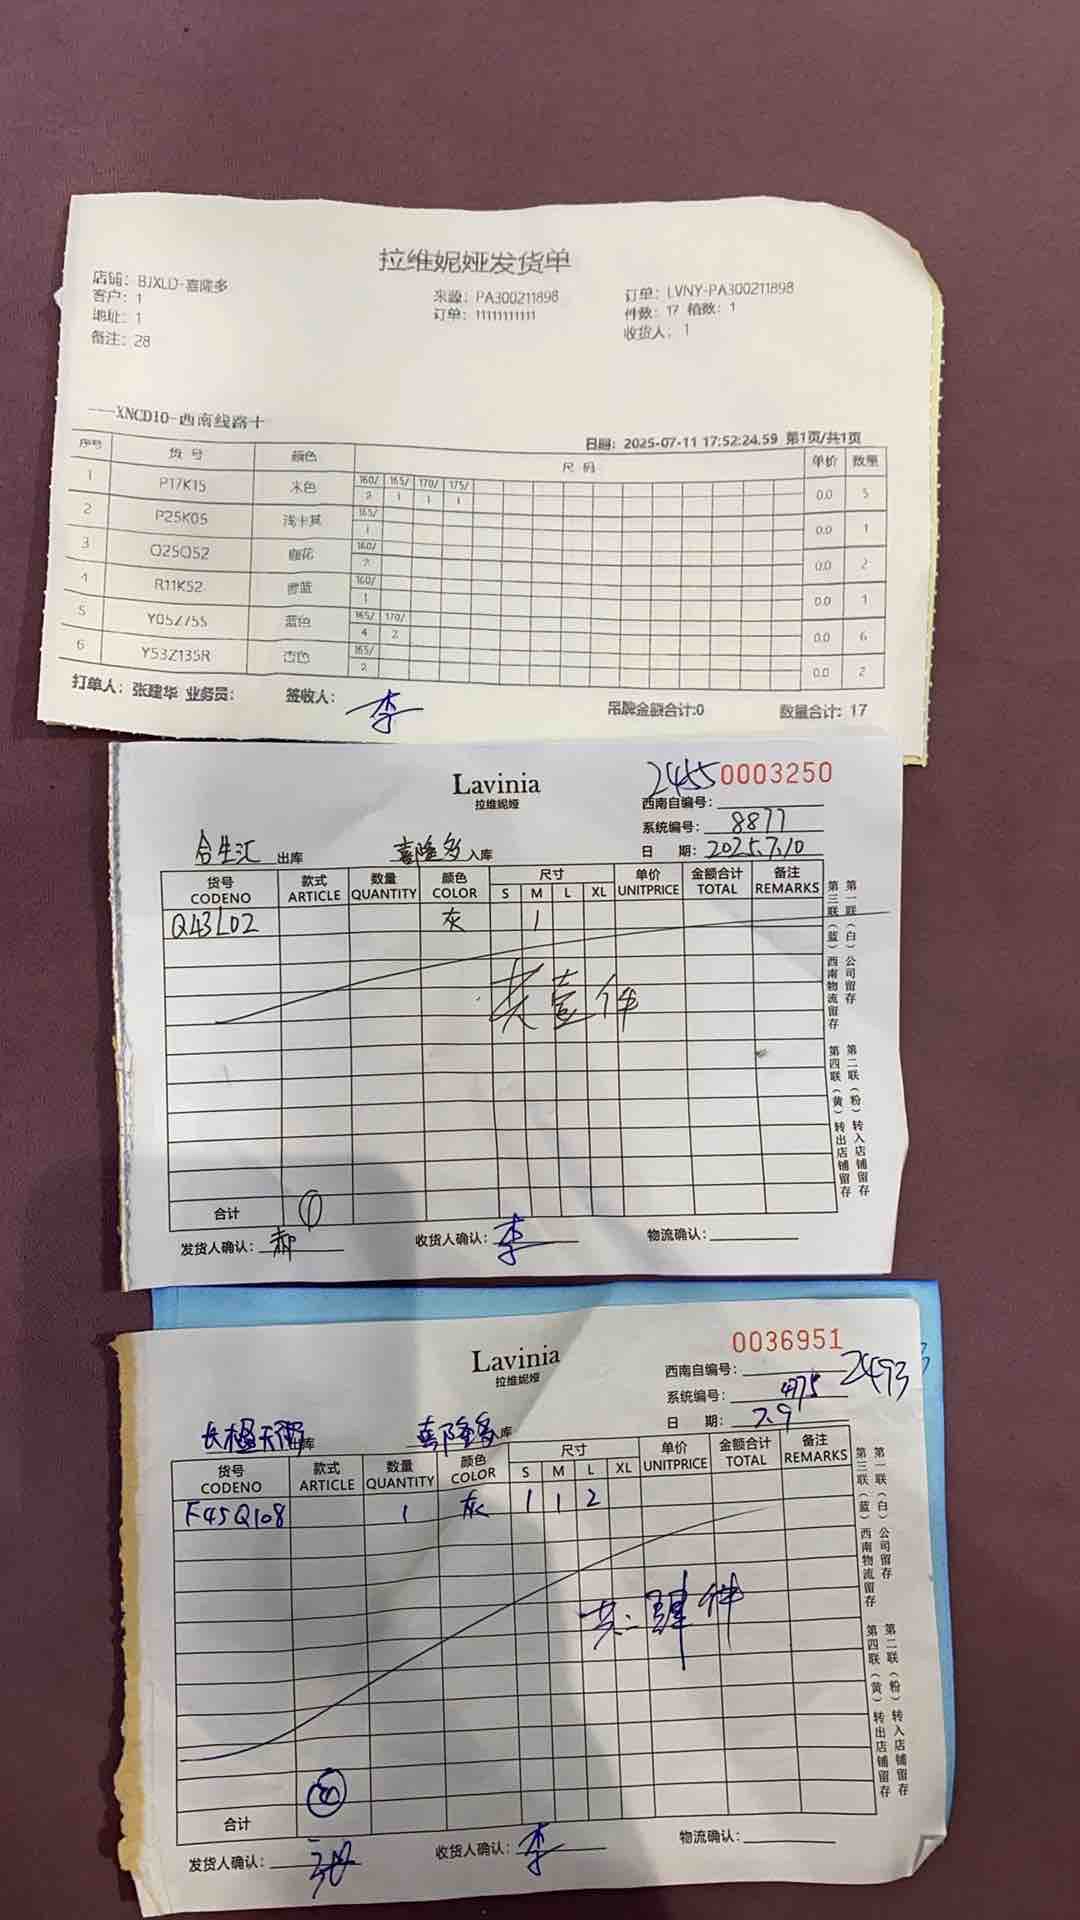 拉维妮娅发货单
店铺：BJXLD-喜隆多
客户：1
地址：1
备注：28
来源：PA300211898
订单：11111111111
订单：LVNY-PA300211898
件数：17 箱数：1
收货人：1
----XNCD10-西南线路十
日期：2025-07-11 17:52:24.59 第1页/共1页
序号 货号 颜色 尺码 单价 数量
160/ 165/ 170/ 175/
1 P17K15 米色 2 1 1 1 0.0 5
165/
2 P25K05 浅卡其 1 0.0 1
160/
3 Q25Q52 咖花 2 0.0 2
160/
4 R11K52 雾蓝 1 0.0 1
165/ 170/
5 Y05Z755 蓝色 4 2 0.0 6
165/
6 Y53Z135R 杏色 2 0.0 2
打单人：张建华 业务员： 签收人：李 吊牌金额合计:0 数量合计：17
Lavinia
拉维妮娅
2455 0003250
西南自编号：
系统编号：8877
日 期：2025.7.10
合生汇 出库 喜隆多 入库
货号 CODENO 款式 ARTICLE 数量 QUANTITY 颜色 COLOR 尺寸 S M L XL 单价 UNITPRICE 金额合计 TOTAL 备注 REMARKS
Q43L02 灰 1
共壹件
合计 1
发货人确认：郝 收货人确认：李 物流确认：
第一联（白）公司留存
第二联（粉）转入店铺留存
第三联（蓝）西南物流留存
第四联（黄）转出店铺留存
Lavinia
拉维妮娅
0036951
西南自编号：
2493
系统编号：4975
日 期：7.9
长楹天街 出库 喜隆多 库
货号 CODENO 款式 ARTICLE 数量 QUANTITY 颜色 COLOR 尺寸 S M L XL 单价 UNITPRICE 金额合计 TOTAL 备注 REMARKS
F45Q108 1 灰 1 1 2
共：肆件
合计
发货人确认： 收货人确认：李 物流确认：
第一联（白）公司留存
第二联（粉）转入店铺留存
第三联（蓝）西南物流留存
第四联（黄）转出店铺留存